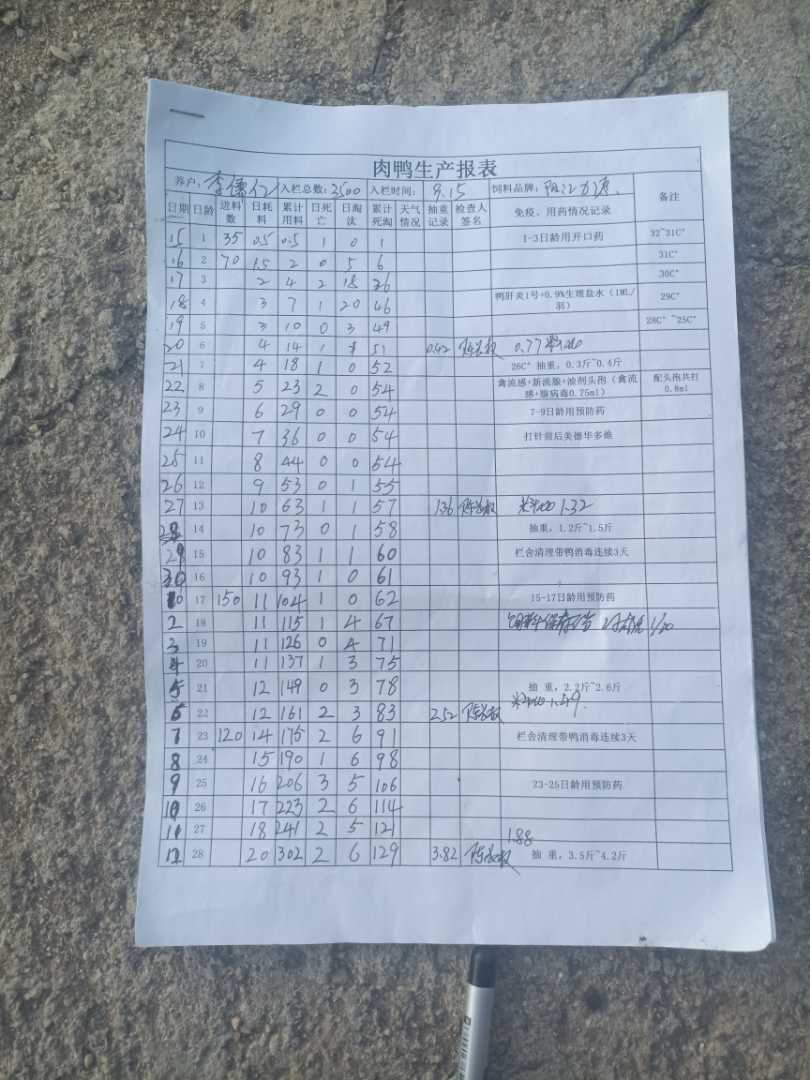 肉鸭生产报表
养户: 李 入栏总数: 3500 入栏时间: 9.15 饲料品牌: 阳江 备注
日期 日龄 进料数 日耗料 累计用料 日死亡 日淘汰 累计死淘 天气情况 抽重记录 检查人签名 免疫、用药情况记录
15 1 35 0.5 0.5 1 0 1 1-3日龄用开口药 32~31C°
16 2 70 1.5 2 0 5 6 31C°
17 3 2 4 2 18 26 30C°
18 4 3 7 1 20 46 鸭肝炎1号+0.9%生理盐水(1ML/羽) 29C°
19 5 3 10 0 3 49 28C°~25C°
20 6 4 14 1 51 0.42 0.77
21 7 4 18 1 0 52 26C° 抽重，0.3斤~0.4斤
22 8 5 23 2 0 54 禽流感+新流腺+油剂头孢(禽流感+腺病毒0.75ml) 配头孢共打0.8ml
23 9 6 29 0 0 54 7-9日龄用预防药
24 10 7 36 0 0 54 打针前后美德华多维
25 11 8 44 0 0 54
26 12 9 53 0 1 55
27 13 10 63 1 1 57 1.36 1.32
28 14 10 73 0 1 58 抽重，1.2斤~1.5斤
29 15 10 83 1 1 60 栏舍清理带鸭消毒连续3天
30 16 10 93 1 0 61
17 150 11 104 1 0 62 15-17日龄用预防药
2 18 11 115 1 4 67 饲料
3 19 11 126 0 4 71
4 20 11 137 1 3 75
5 21 12 149 0 3 78 抽 重，2.2斤~2.6斤
6 22 12 161 2 3 83 2.52 1.59
7 23 120 14 175 2 6 91 栏舍清理带鸭消毒连续3天
8 24 15 190 1 6 98
9 25 16 206 3 5 106 23-25日龄用预防药
10 26 17 223 2 6 114
11 27 18 241 2 5 121
1.88
12 28 20 302 2 6 129 3.82 抽 重，3.5斤~4.2斤